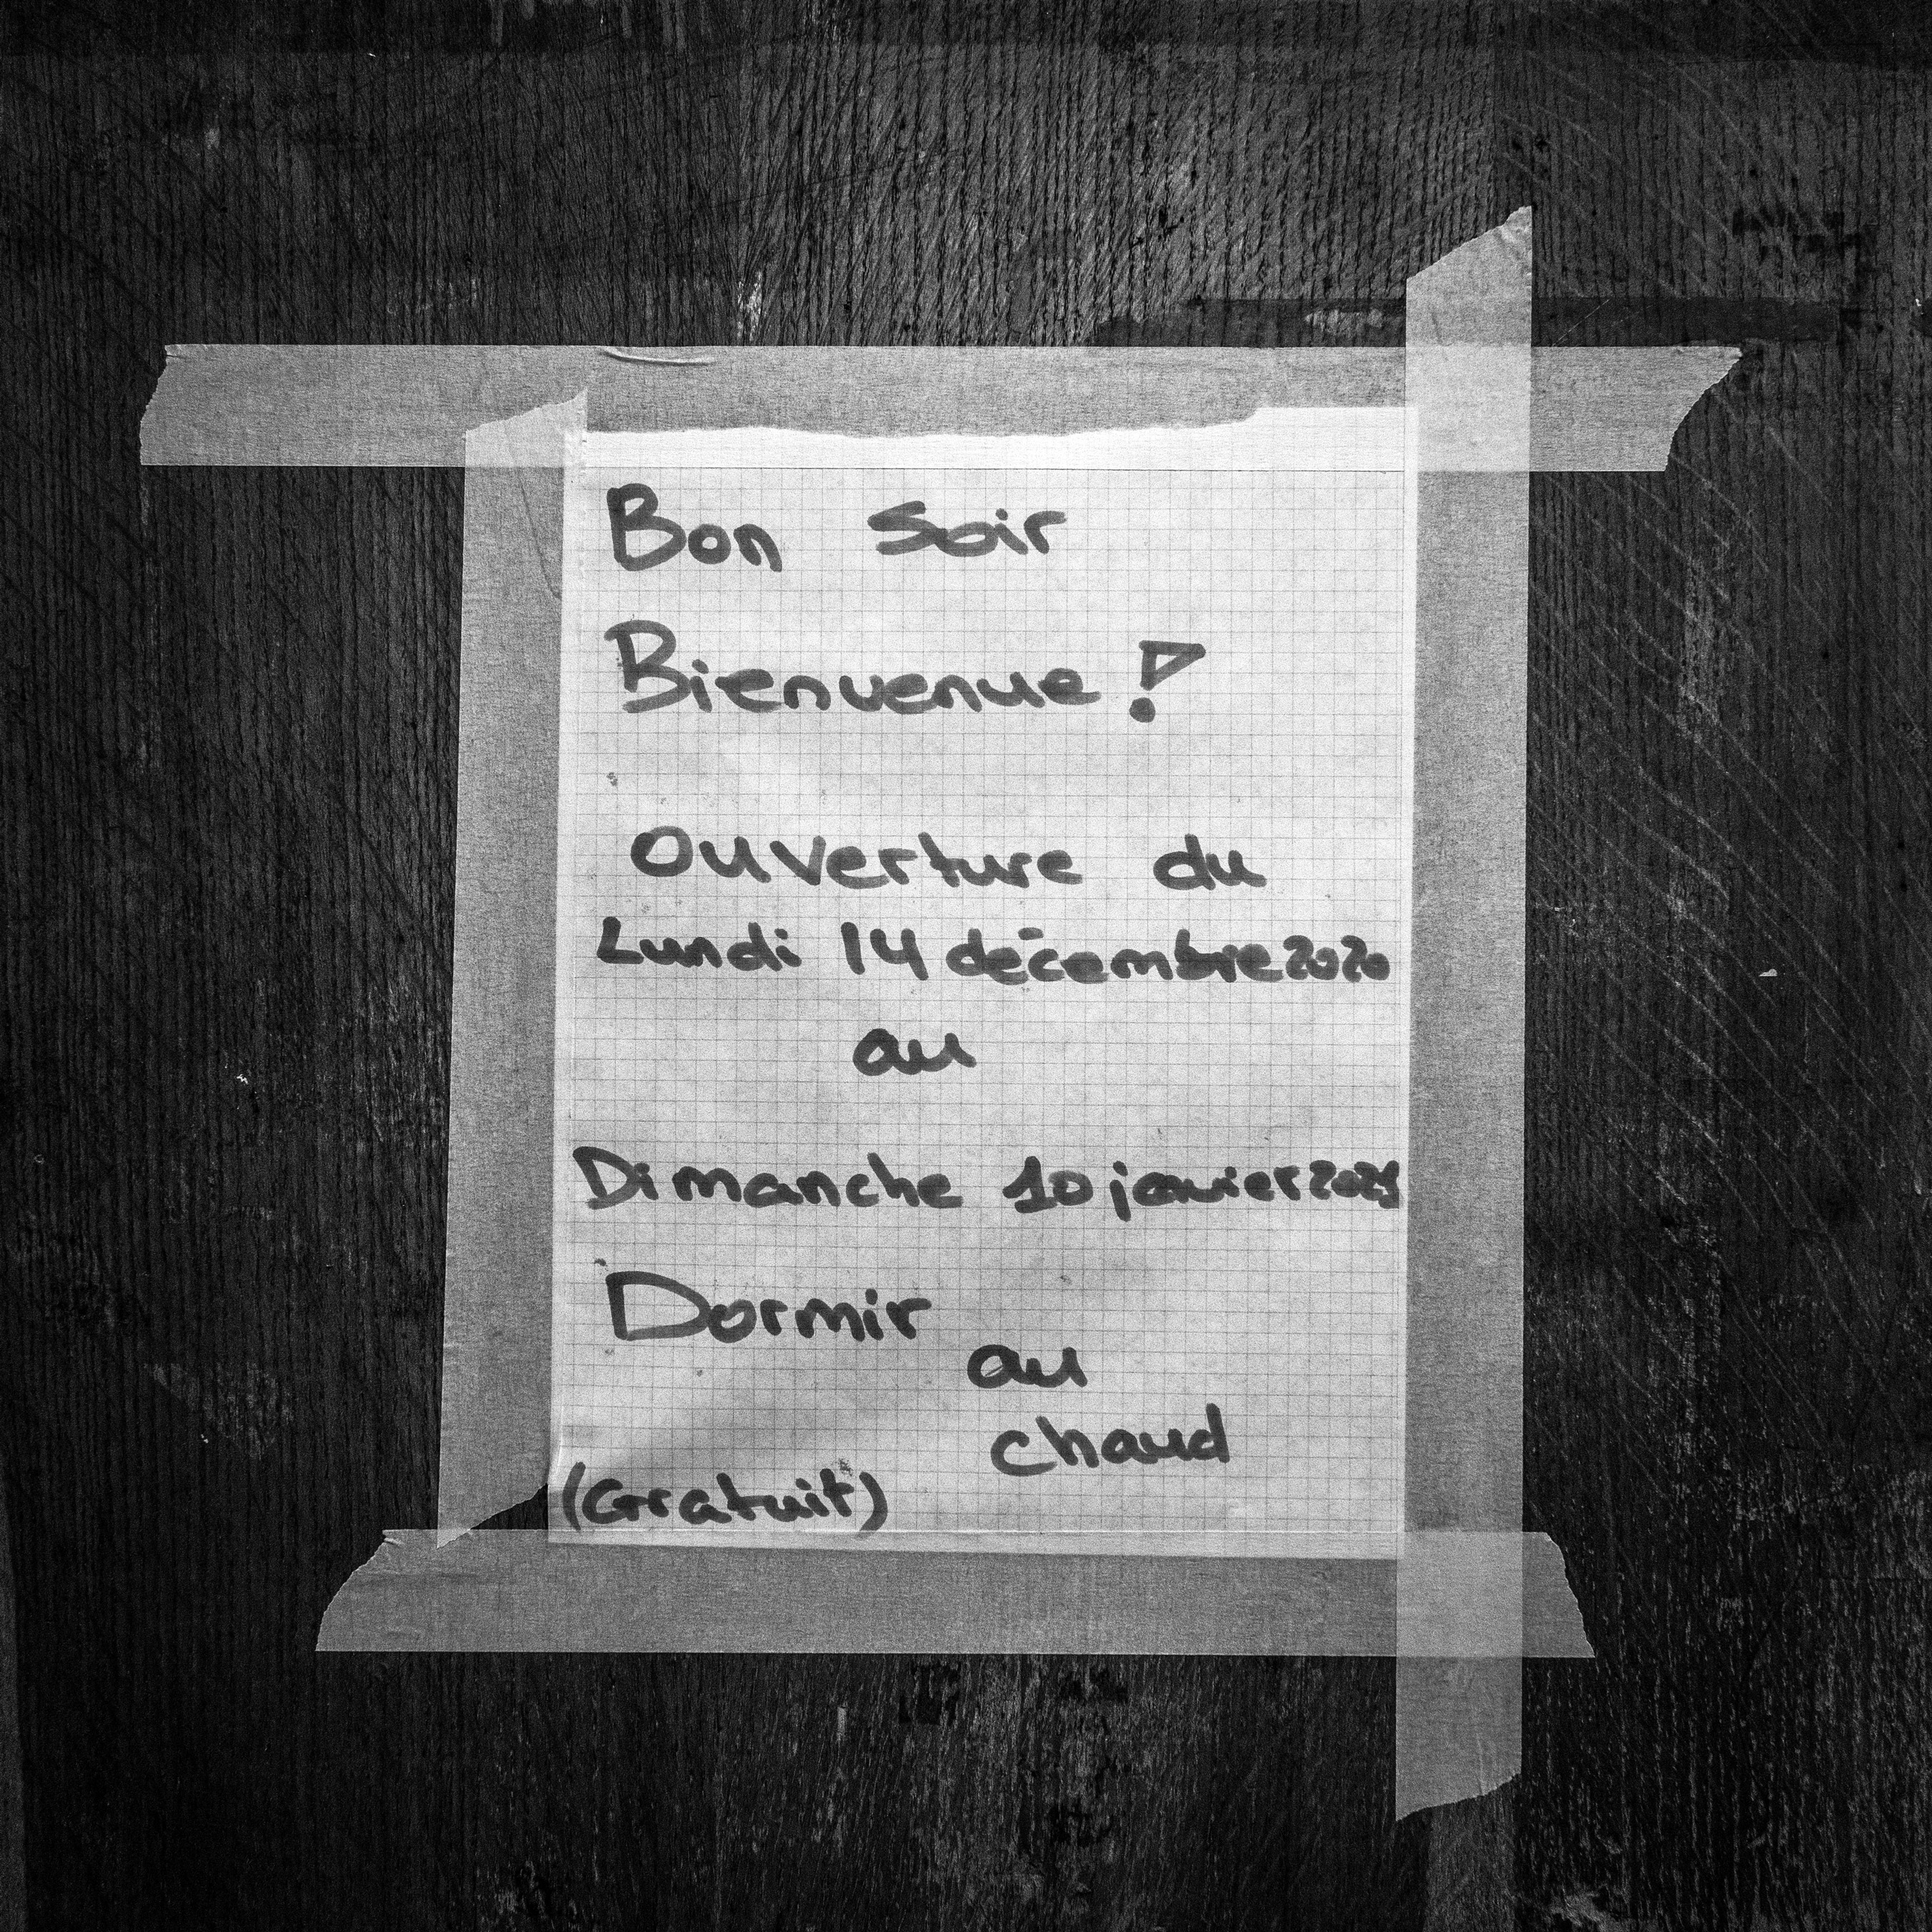 Bon Soir
Bienvenue !
Ouverture du
Lundi 14 décembre 2020
au
Dimanche 10 janvier 2021
Dormir
au
chaud
(Gratuit)